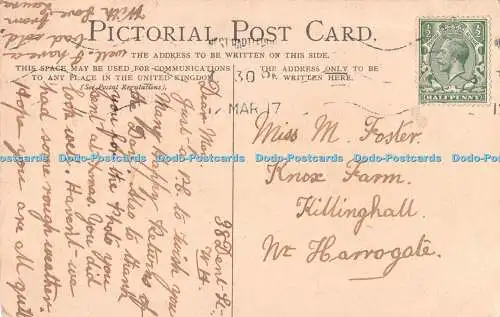 PICTORIAL POST CARD.
THE ADDRESS TO BE WRITTEN ON THIS SIDE.
THIS SPACE MAY BE USED FOR COMMUNICATIONS
TO ANY PLACE IN THE UNITED KINGDOM
(See Postal Regulations.)
THE ADDRESS ONLY TO BE
WRITTEN HERE.
30
MAR 17
HALFPENNY
98 Dent St.
W.H.
Dear
Just a P.C. to wish you
Many Happy Returns of
the Day, also to thank
you for the photo you
sent at Xmas. You did
look well. Haven't we
had some rough weather.
Hope you are all quite
well. I have a
bad cold.
With love from
Laura
Miss M. Foster.
Knox Farm.
Killinghall.
Nr Harrogate.
Postcards-Online Postcards-Online Postcards-Online Postcards-Online Postcards-Online Postcards-Online